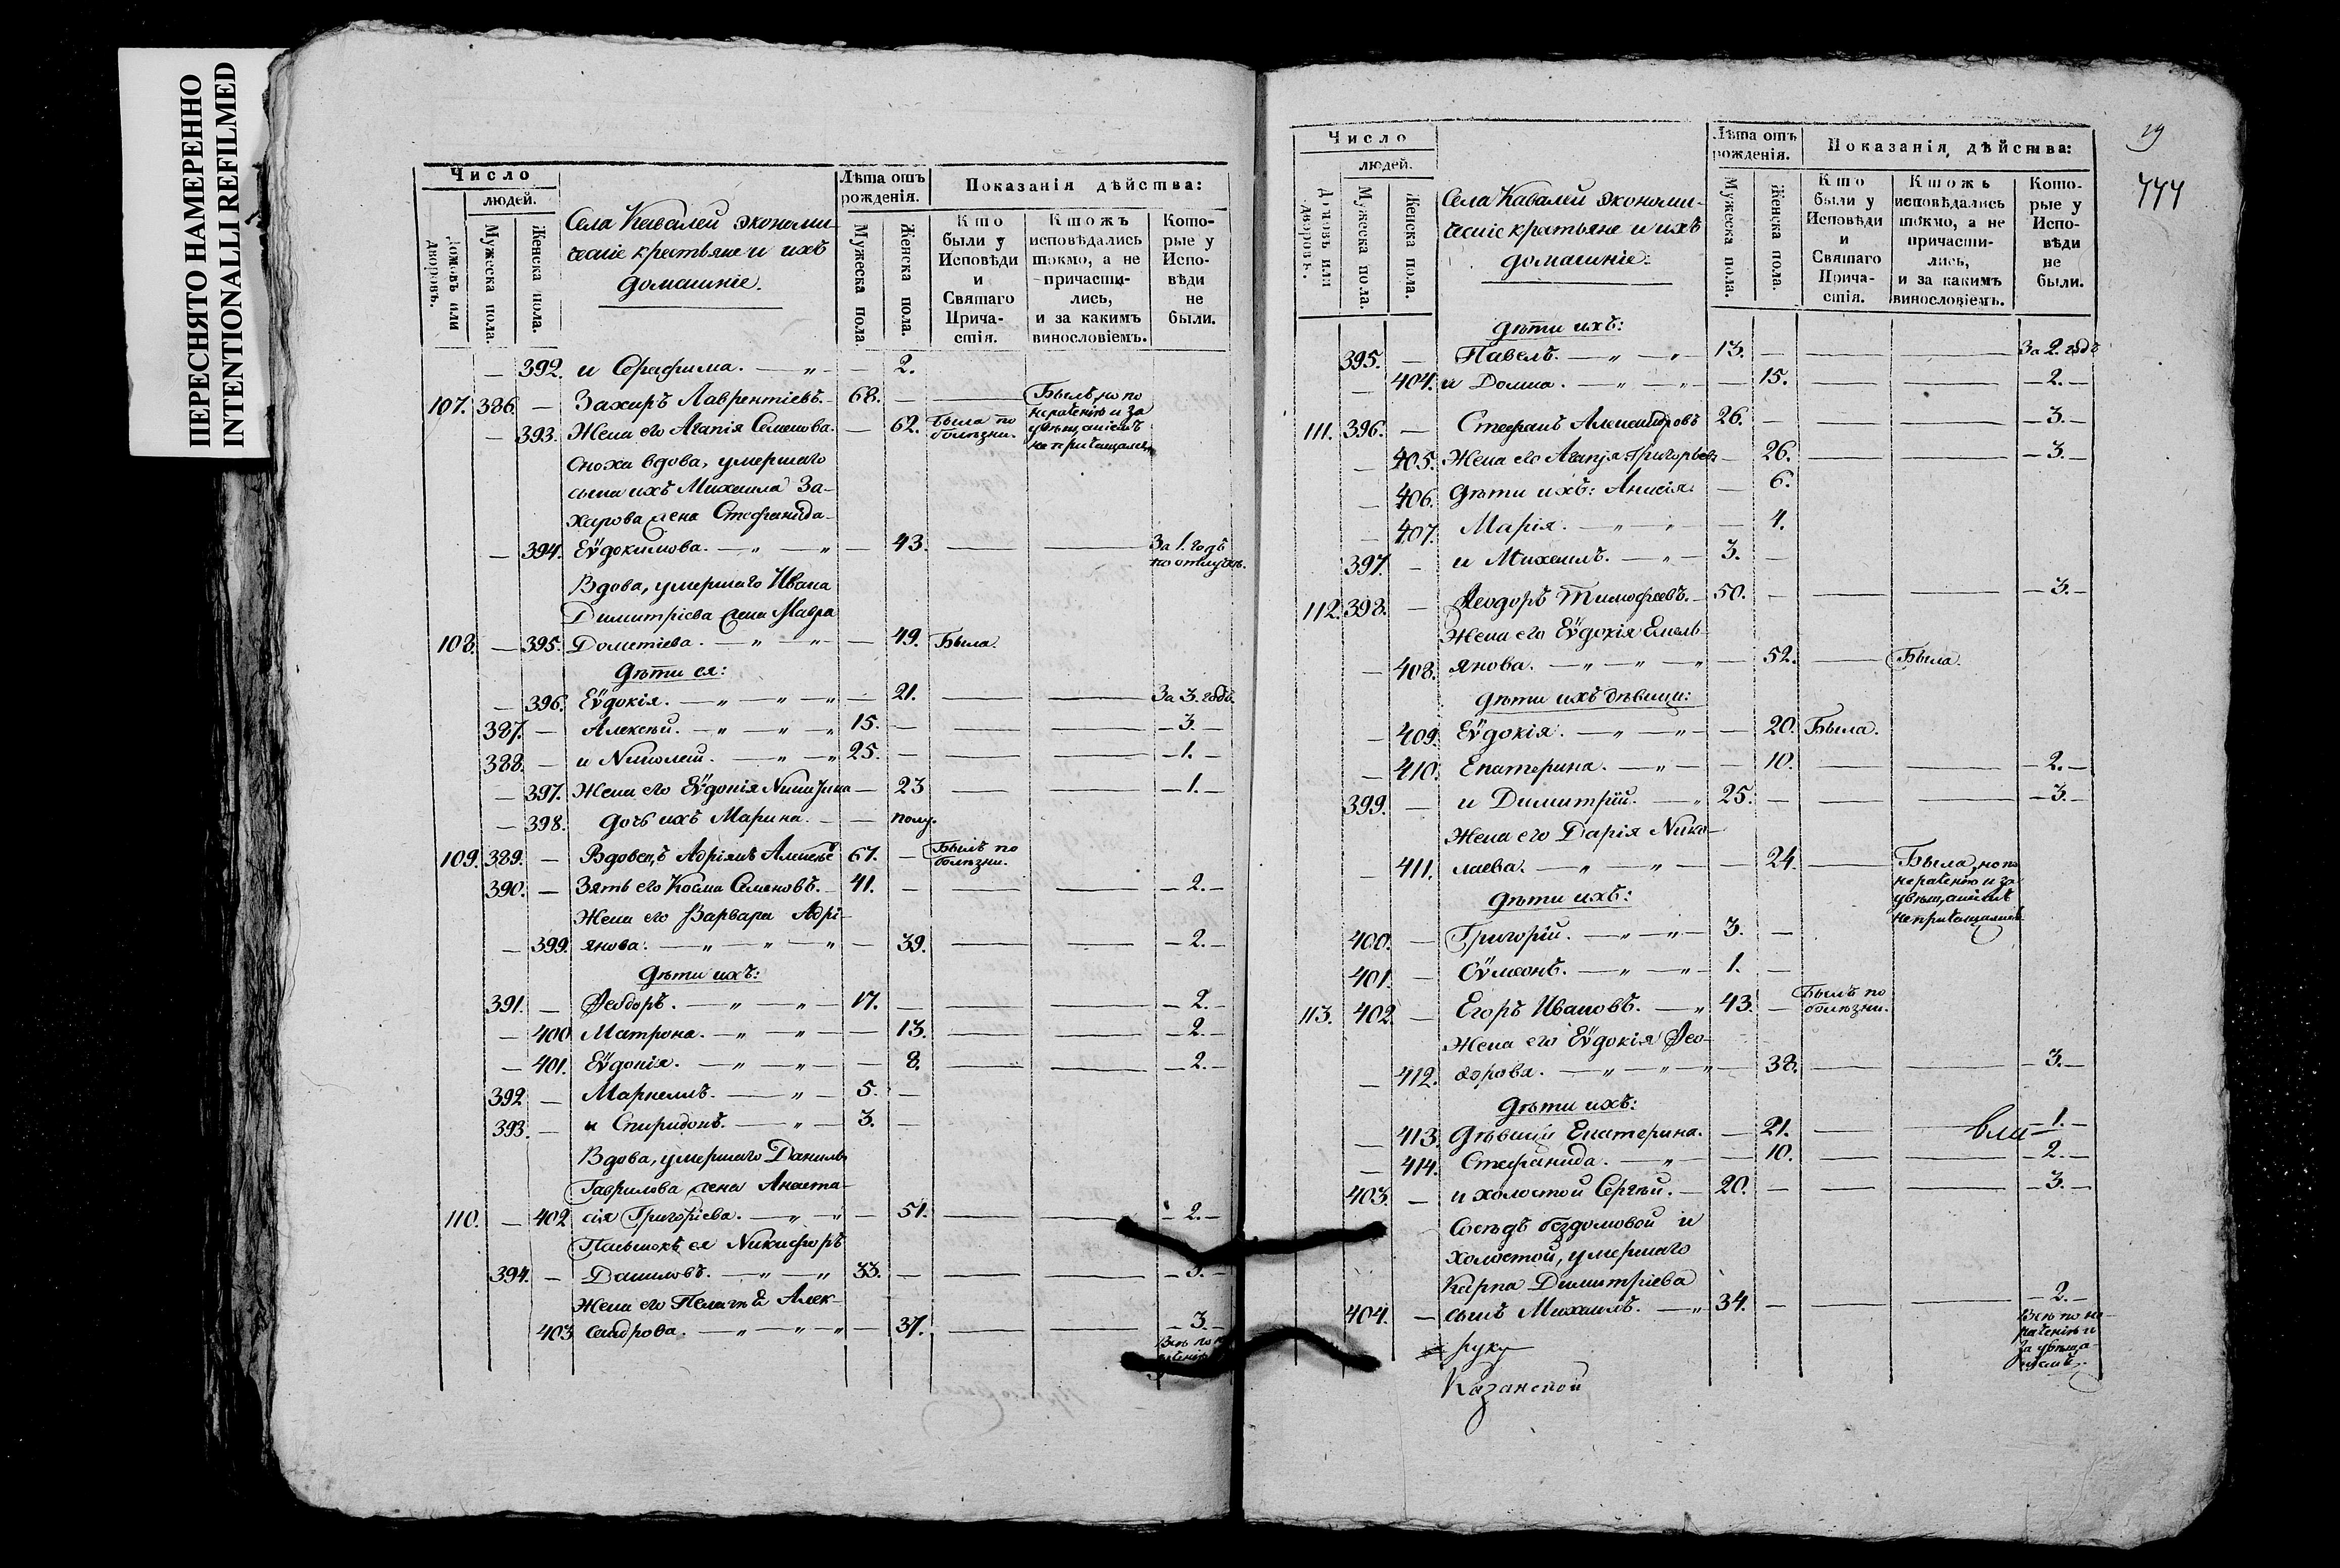 ПЕРЕСНЯТО НАМЕРЕННО
INTENTIONALLI REFILMED
Число
людей.
Домовъ или дворовъ.
Мужеска пола.
Женска пола.
Села Кавалей экономи-
ческіе крестьяне и ихъ
домашніе.
Лѣта отъ рожденія.
Мужеска пола.
Женска пола.
Показанія дѣйства:
Кто были у Исповѣди и Святаго Прича- стія.
Ктожъ исповѣдались токмо, а не причасти- лись, и за какимъ винословіемъ.
Кото- рые у Испо- вѣди не были.
— 392. и Серафима. — „ — — 2.
107. 386. — Захаръ Лаврентіевъ. 68. — — Былъ, но по
нераченію и за
— 393. Жена его Агапія Семенова. — 62. Была по болѣзни. увѣщаніемъ
не причащались
Сноха вдова, умершаго
сына ихъ Михаила За-
харова жена Стефанида
— 394. Еѵдокимова. — „ — „ — 43. — — За 1. годъ
по отлучкѣ.
Вдова, умершаго Ивана
Димитріева жена Мавра
108. — 395. Дометіева. — „ — „ — 49. Была.
Дѣти ея:
— 396. Еѵдокія. — „ — „ — 21. — — За 3. года
387. — Алексѣй. — „ — „ 15. — — — — 3. —
388. — и Николай. — „ — „ 25. — — — — 1. —
— 397. Жена его Еѵдокія — 23 — — — 1. —
— 398. дочь ихъ Марина. — — полу.
109. 389. — Вдовецъ Адріанъ Алексѣевъ 67. — Былъ по болѣзни.
390. — Зять его Косма Семеновъ. — 41. — — — — 2. —
Жена его Варвара Адрі-
— 399. янова. — „ — „ — „ — 39. — — — 2. —
Дѣти ихъ:
391. — Ѳеодоръ. — „ — „ — 17. — — — — 2. —
— 400. Матрона. — „ — „ — 13. — — — 2. —
— 401. Еѵдокія. — „ — „ — 8. — — — 2. —
392. — Маркеллъ. — „ — 5. —
393. — и Спиридонъ. — „ — 3. —
Вдова, умершаго Данила
Гаврилова жена Анаста-
110. — 402. сія Григоріева. — „ — „ — 51. — — — 2. —
Пасынокъ ея Никифоръ
394. — Даниловъ. — „ — „ 33. — — — — 3. —
Жена его Пелагѣя Алек-
403. сандрова. — „ — „ — „ — 37. — — — 3. —
Всѣ по не-
раченію
Число
людей.
Домовъ или дворовъ.
Мужеска пола.
Женска пола.
Села Кавалей экономи-
ческіе крестьяне и ихъ
домашніе.
Лѣта отъ рожденія.
Мужеска пола.
Женска пола.
Показанія дѣйства:
Кто были у Исповѣди и Святаго Прича- стія.
Ктожъ исповѣдались токмо, а не причасти- лись, и за какимъ винословіемъ.
Кото- рые у Испо- вѣди не были.
29
777
Дѣти ихъ:
395. — Павелъ. — „ — „ 13. — — — За 2. года
— 404. и Домна. — „ — „ — 15. — — — 2. —
111. 396. — Стефанъ Александровъ 26. — — — — 3. —
— 405. Жена его Агапія Григорьева — 26. — — — 3. —
— 406. Дѣти ихъ: Анисія — 6.
— 407. Марія. — „ — „ — 4.
397. — и Михаилъ. — „ — 3. —
112. 398. — Ѳеодоръ Тимофеевъ. — 50. — — — — 3. —
Жена его Еѵдокія Емель-
— 408. янова. — „ — „ — „ — 52. — Была.
Дѣти ихъ дѣвицы:
— 409. Еѵдокія. — „ — „ — 20. Была.
— 410. Екатерина. — „ — — 10. — — — 2. —
399. — и Димитрій. — „ 25. — — — — 3. —
Жена его Дарія Нико-
— 411. лаева. — „ — „ — 24. — Была, но по
нераченію и за
увѣщаніемъ
не причащались
Дѣти ихъ:
400. — Григорій. — „ — „ — 3. —
401. — Сѵмеонъ. — „ — „ — 1. —
113. 402. — Егоръ Ивановъ. — „ 43. — Былъ по болѣзни.
Жена его Еѵдокія Ѳео-
— 412. дорова. — „ — „ — „ — 38. — — — 3. —
Дѣти ихъ:
— 413. Дѣвица Екатерина. — 21. — — — 1. —
— 414. Стефанида. — „ — 10. — — — 2. —
403. — и холостой Сергѣй. — 20. — — — — 3. —
Сосѣдъ бездомовой и
холостой, умершаго
Карпа Димитріева
404. — сынъ Михаилъ. — „ 34. — — — — 2. —
Всѣ по не-
раченію и
за увѣща-
ніемъ.
руку
Казанской